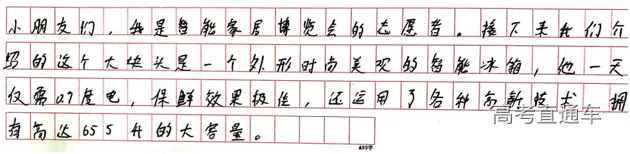 小朋友们，我是智能家居博览会的志愿者。接下来我们介
绍的这个大块头是一个外形时尚美观的智能冰箱，他一天
仅需0.7度电，保鲜效果极佳，还运用了各种高新技术 拥
有高达655升的大容量。
高考直通车